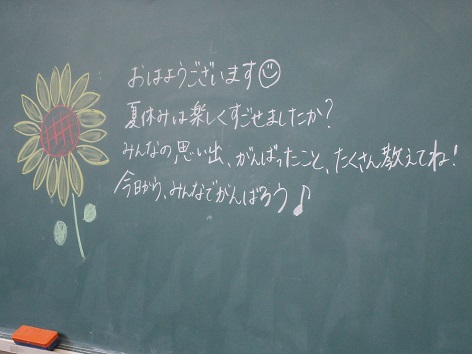 おはようございます☺
夏休みは楽しくすごせましたか？
みんなの思い出、がんばったこと、たくさん教えてね！
今日から、みんなでがんばろう♪